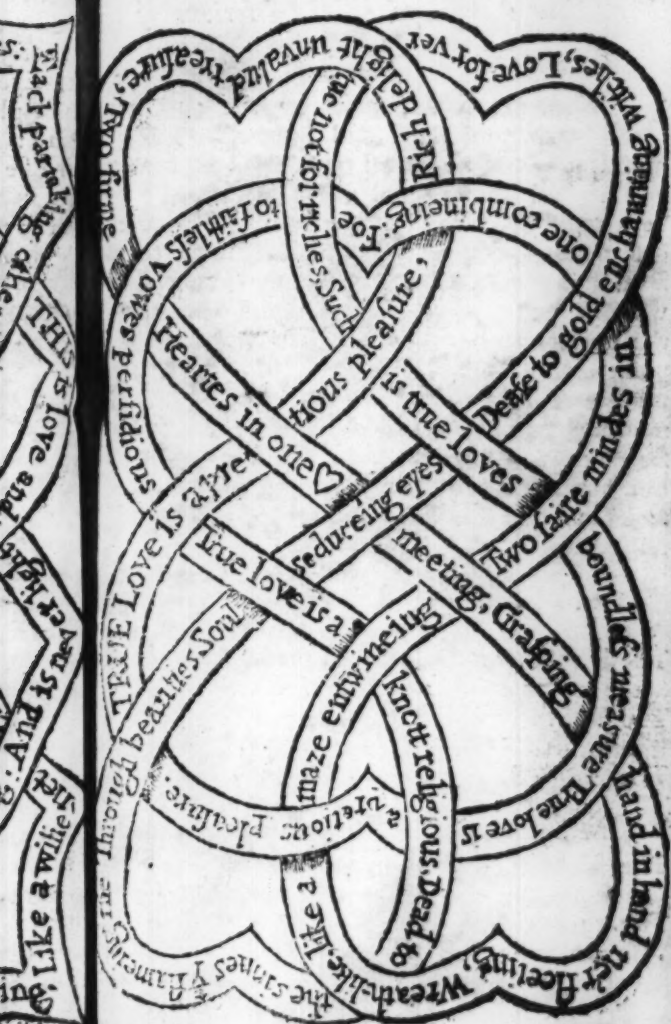 TRUE Love is a pretious pleaſure,
Rich delight unvalud treaſure,
Two firme Heartes in one♡ meeting,
Graſping hand in hand ne'r fleeting,
Wreath-like, like a maze entwineing
Two faire mindes in one combineing:
Foe to faithleſs vowes perfidious
True love is a knott religious.
Dead to the sinnes ẙ flameing rise
Through beauties Soul seduceing eyes
Deafe to gold enchaunting witches,
Love for vertue not for riches,
Such is true loves boundleſs meaſure
True love is a pretious pleaſure.
Each partaking
THis is love and
And is never
Like a wilie net